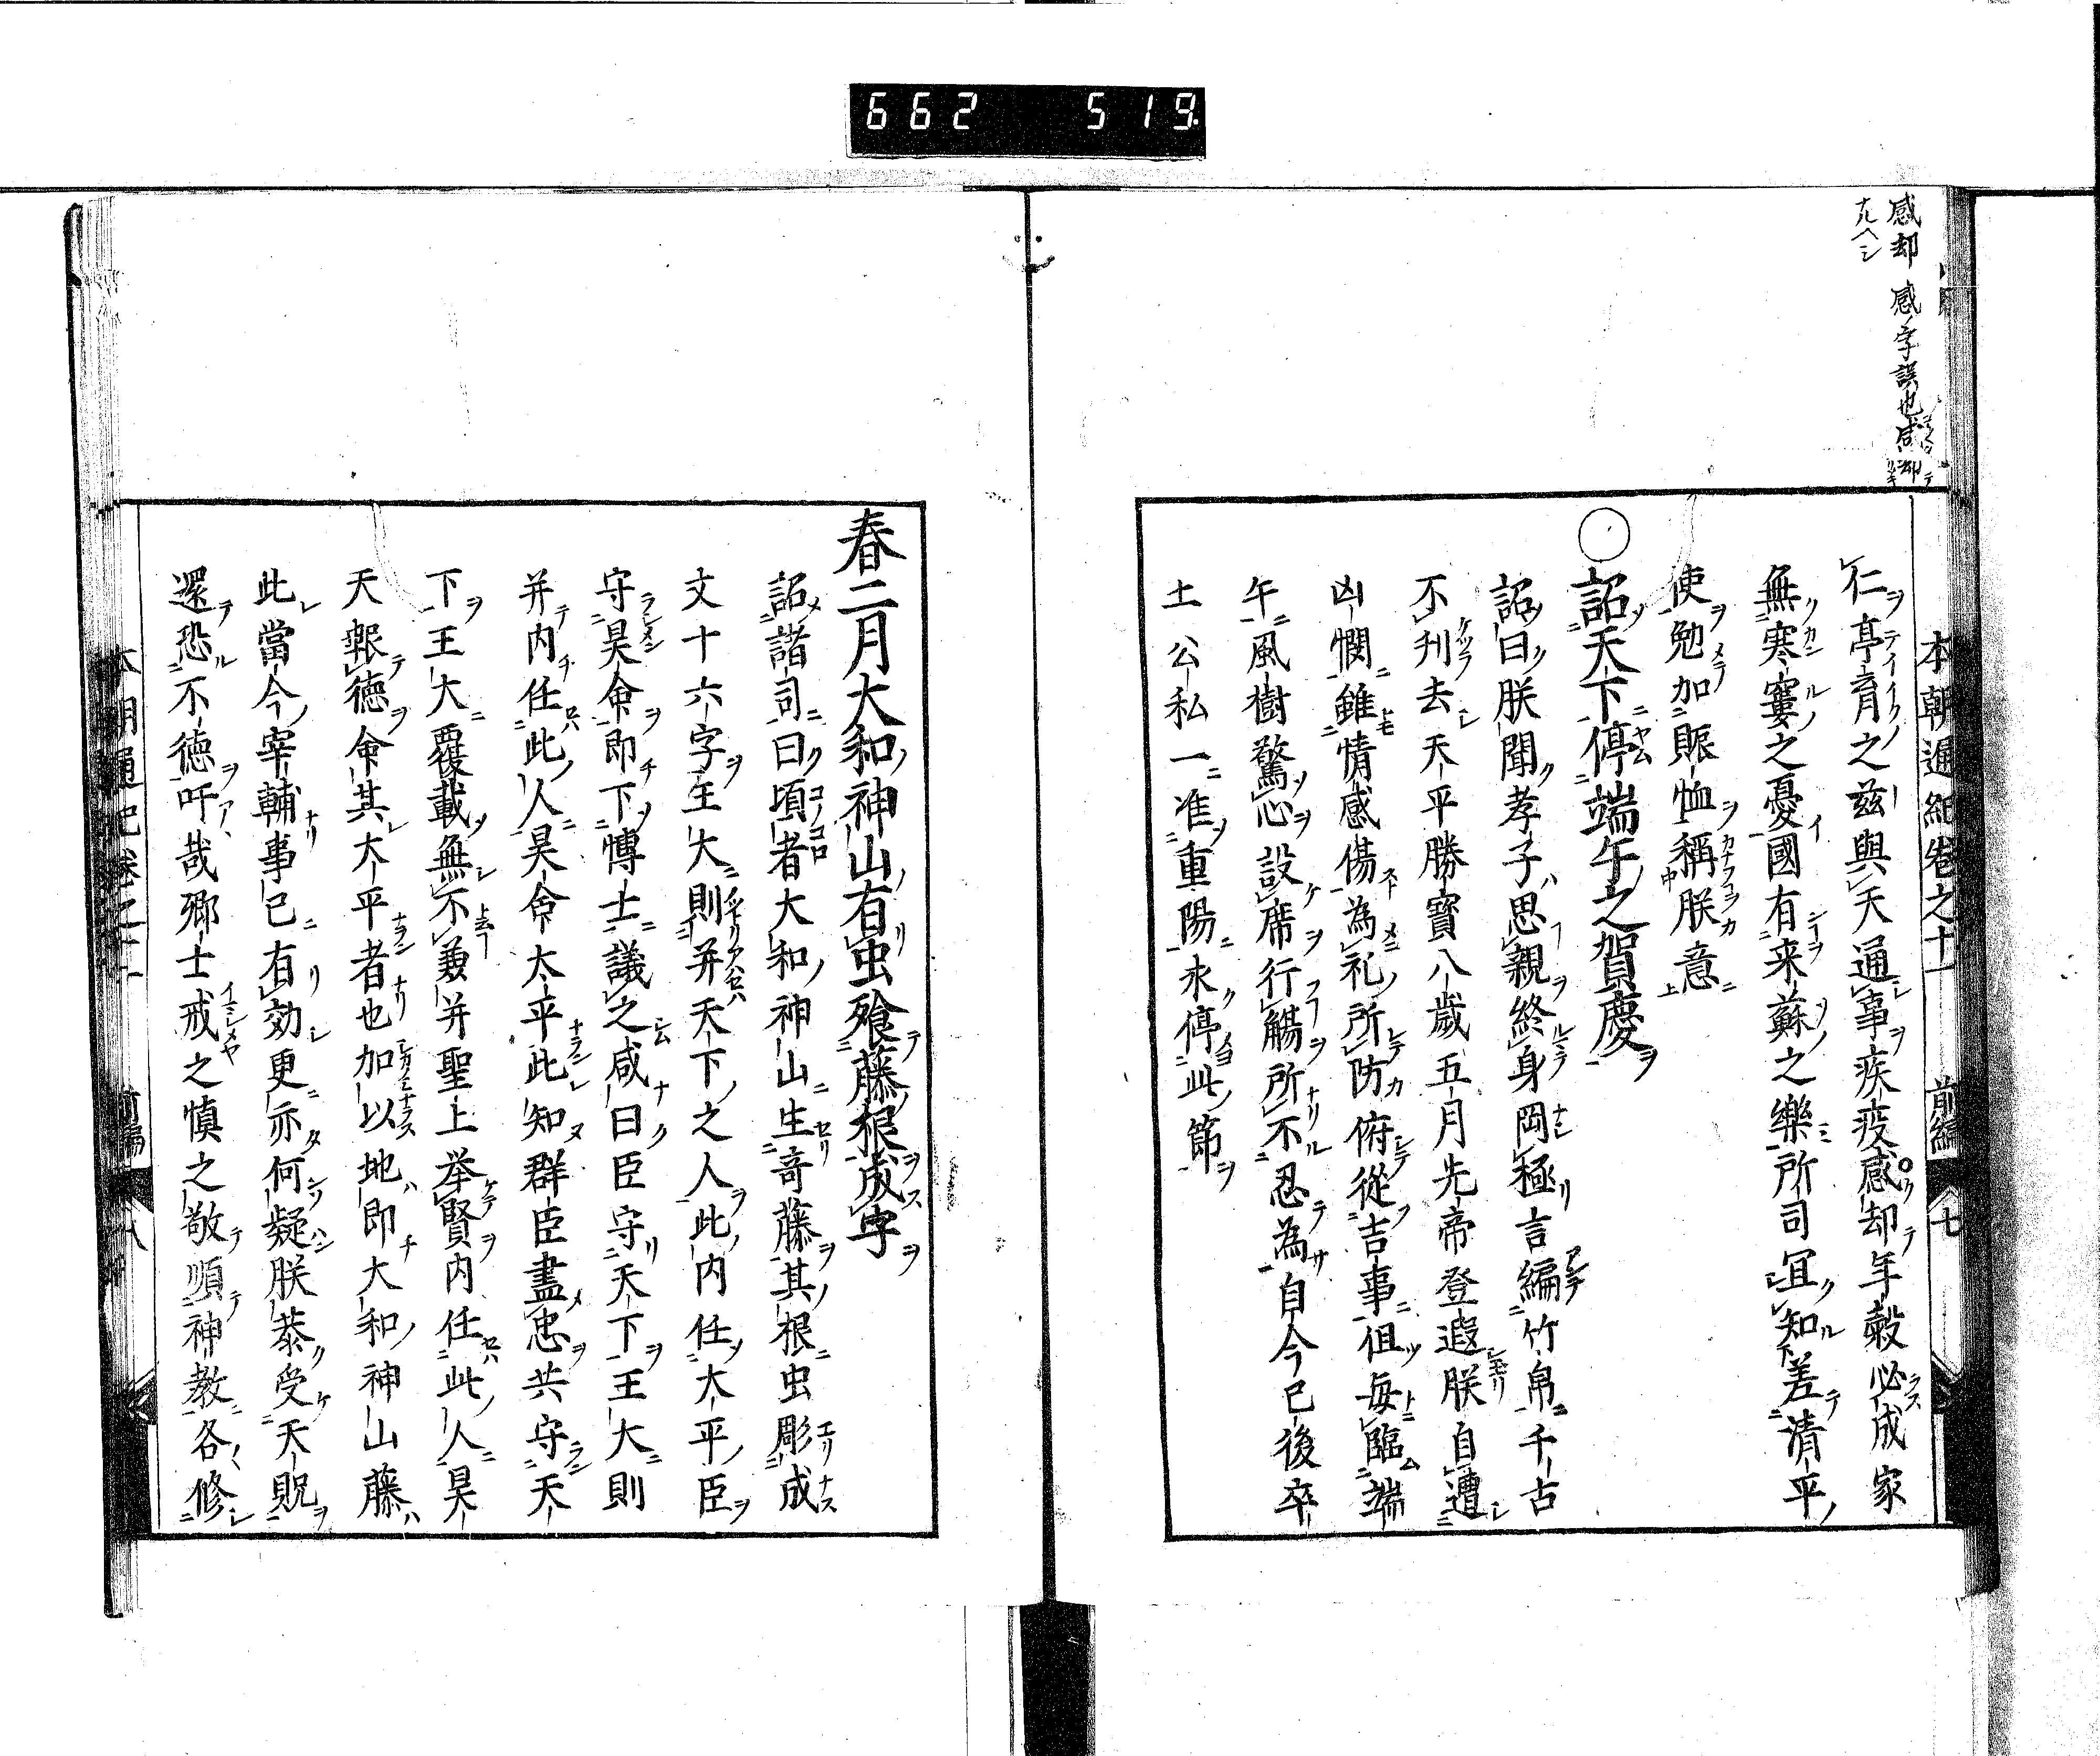 662 519
感却 感ノ字誤也咸却
ナルヘシ
本朝通紀卷之十一 前編 七
仁亭育之兹與天通事疾疫感却年穀必成家
無寒窶之憂國有来蘇之樂所司冝知差清平
使勉加賑恤稱朕意
○詔天下停端午之賀慶
詔曰朕聞孝子思親終身岡極言編竹帛千古
不刋去天平勝寳八歲五月先帝登遐朕自遭
凶憫雖情感傷為礼所防俯從吉事徂每臨端
午風樹驚心設席行觴所不忍為自今已後率
土公私一准重陽永停此節
春二月大和神山有虫飱藤根成字
詔諸司曰頃者大和神山生竒藤其根虫彫成
文十六字王大則并天下之人此内任大平臣
守昊命即下博士議之咸曰臣守天下王大則
并内任此人昊命太平此知群臣盡忠共守天
下王大覆載無不兼并聖上举賢内任此人昊
天報徳命其大平者也加以地即大和神山藤
此當今宰輔事已有効更亦何疑朕恭受天貺
還恐不徳吁哉卿士戒之慎之敬順神教各修
本朝通紀卷之十一 前編 八